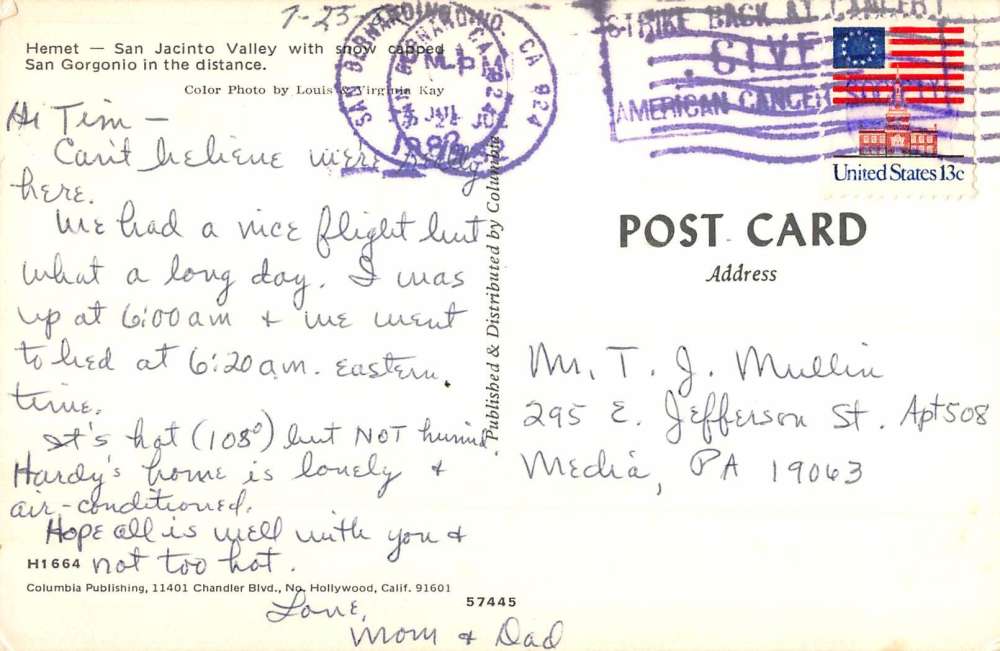 7-23
Hemet — San Jacinto Valley with snow capped
San Gorgonio in the distance.
Color Photo by Louis & Virginia Kay
Hi Tim —
Can't believe we're really
here.
We had a nice flight but
what a long day. I was
up at 6:00 am & we went
to bed at 6:20 a.m. Eastern
time.
It's hot (108°) but NOT humid.
Hardy's home is lovely &
air-conditioned.
Hope all is well with you &
not too hot.
Love,
Mom & Dad
H1664
Columbia Publishing, 11401 Chandler Blvd., No. Hollywood, Calif. 91601
57445
Published & Distributed by Columbia
SAN BERNARDINO, CA 924
PM
JUL
1982
STRIKE BACK AT CANCER!
GIVE
AMERICAN CANCER SOCIETY
United States 13c
POST CARD
Address
Mr. T. J. Mullin
295 E. Jefferson St. Apt 508
Media, PA 19063